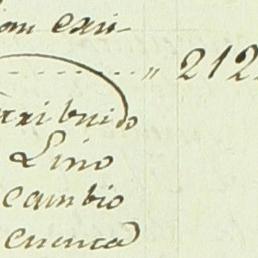 exri-
" 212
tribuido
Lino
cambio
cuenta